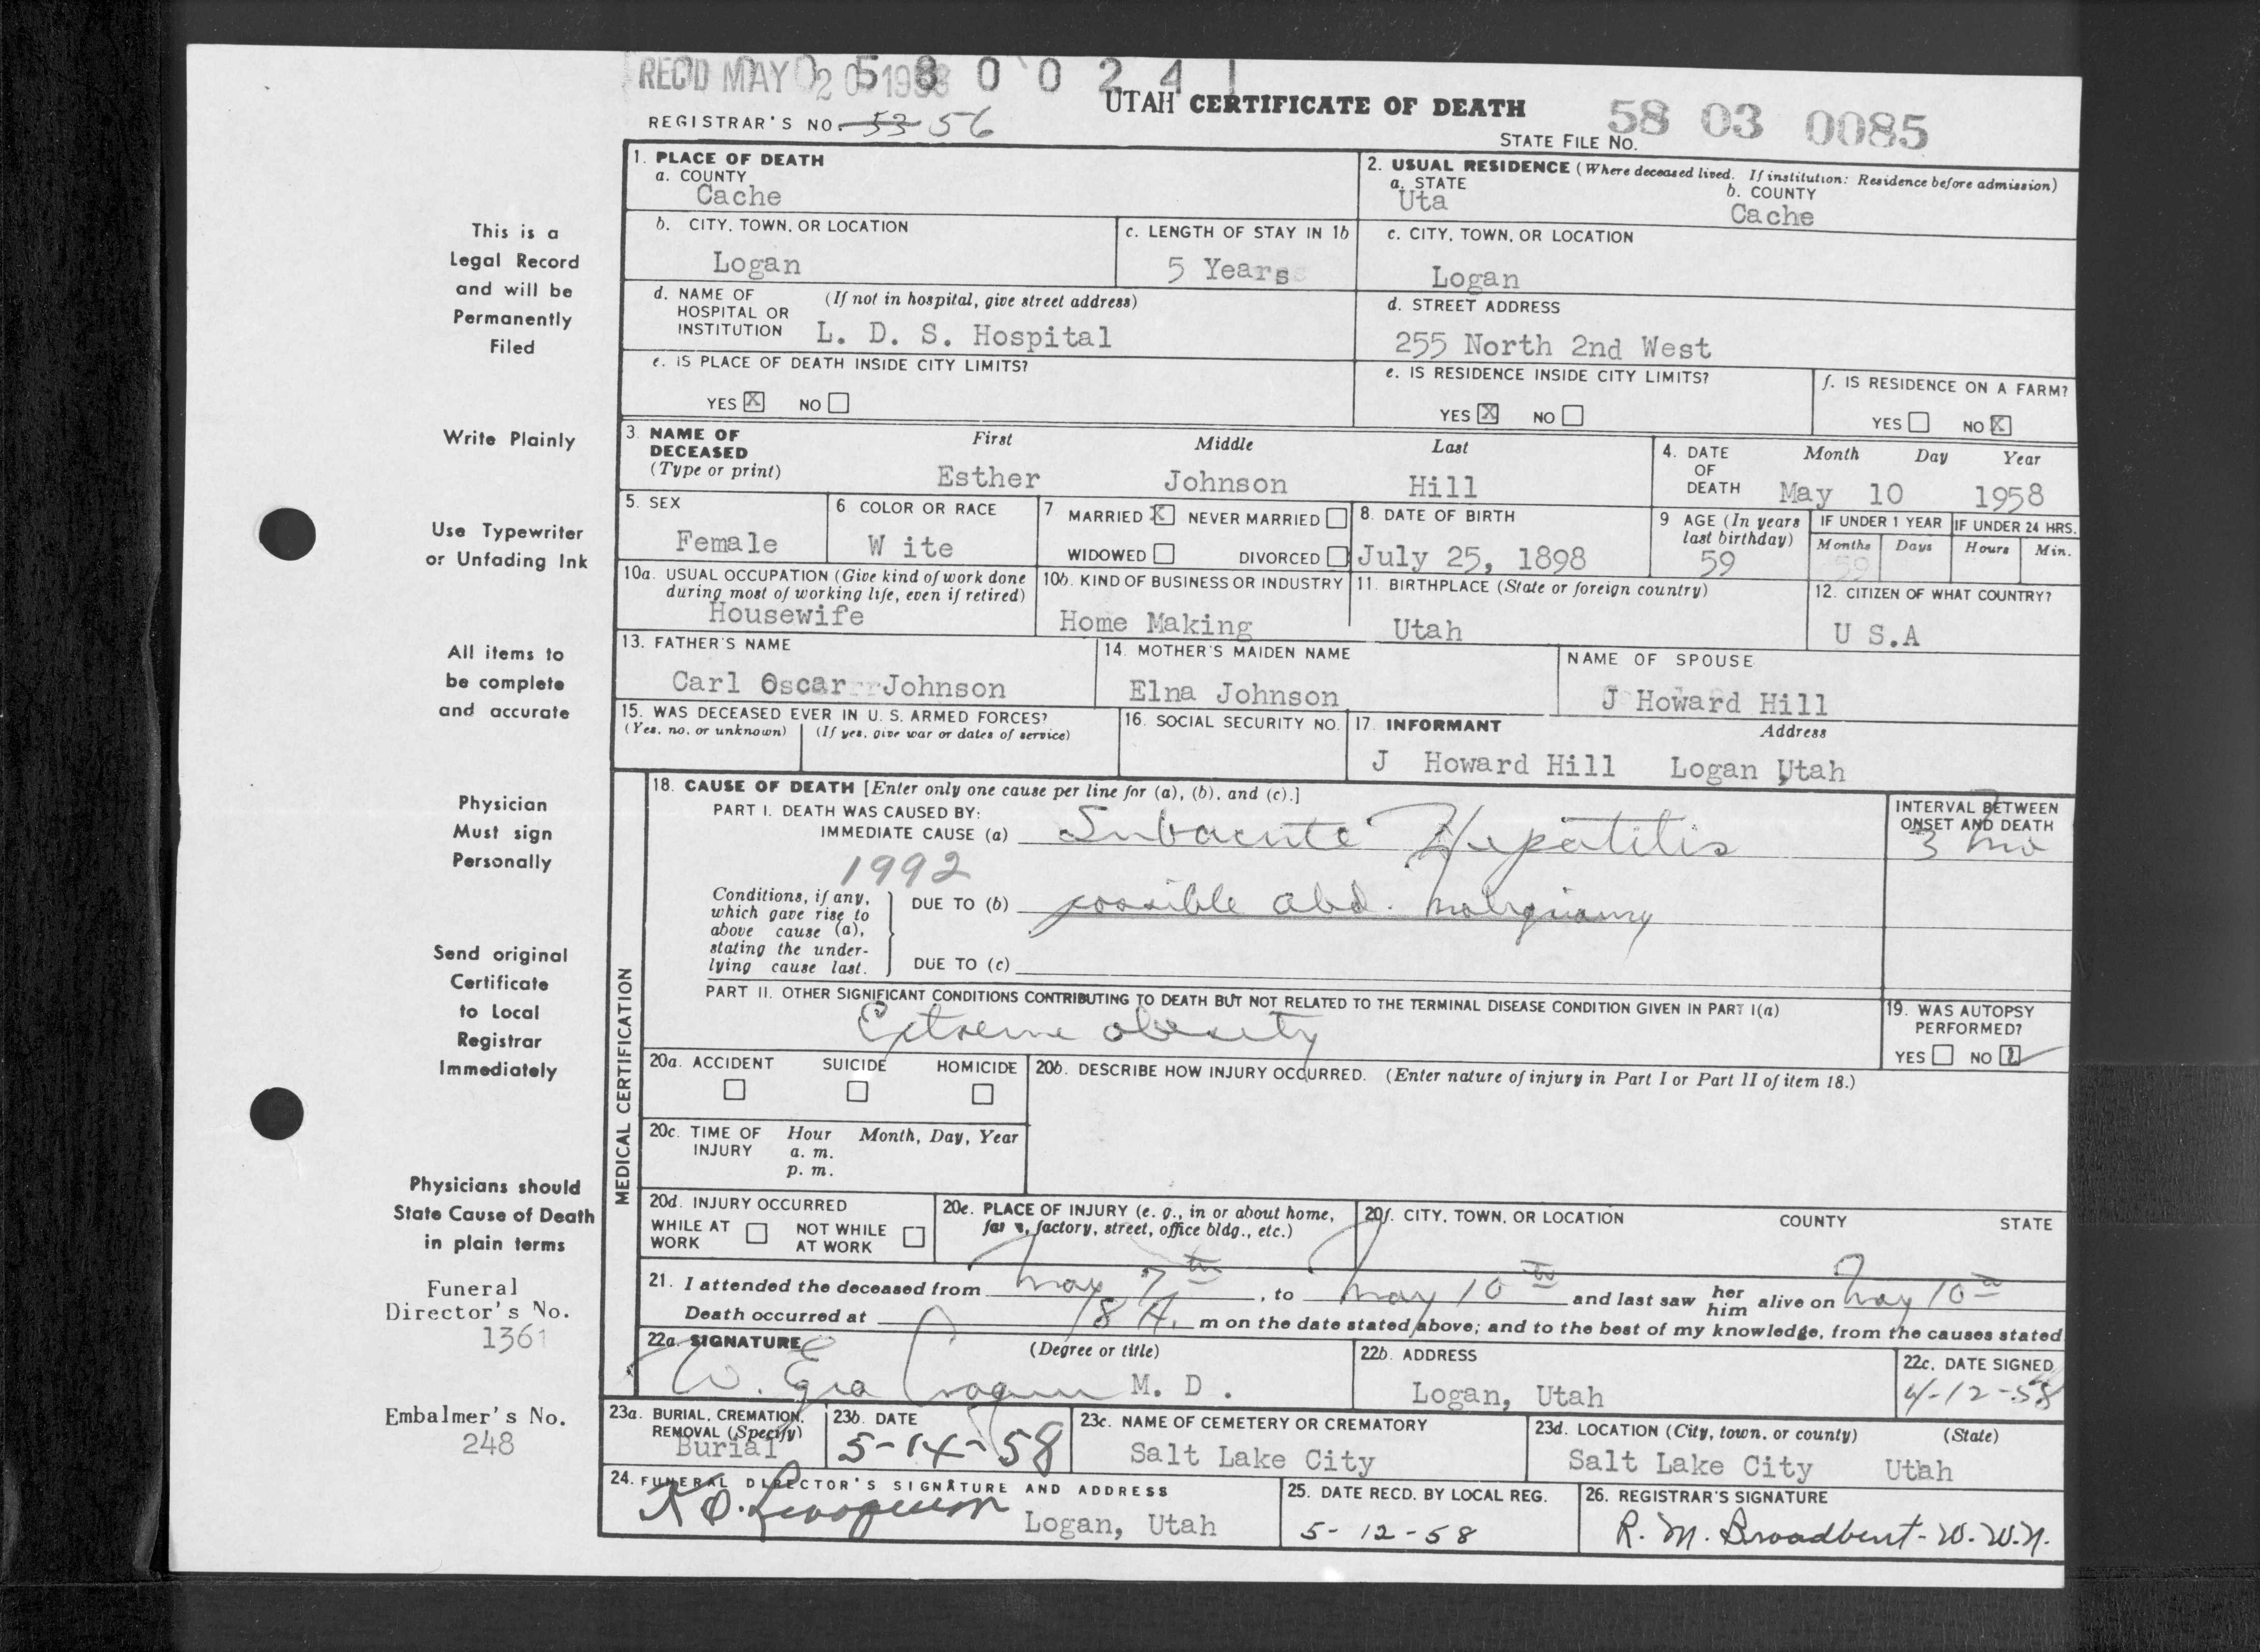 REC'D MAY 20 1958
0 5 8 0 0 2 4 1
UTAH CERTIFICATE OF DEATH
REGISTRAR'S NO. 53 56
STATE FILE NO. 58 03 0085
1. PLACE OF DEATH
a. COUNTY
Cache
2. USUAL RESIDENCE (Where deceased lived. If institution: Residence before admission)
a. STATE b. COUNTY
Uta Cache
b. CITY, TOWN, OR LOCATION
Logan
c. LENGTH OF STAY IN 1b
5 Years
c. CITY, TOWN, OR LOCATION
Logan
d. NAME OF (If not in hospital, give street address)
HOSPITAL OR
INSTITUTION L. D. S. Hospital
d. STREET ADDRESS
255 North 2nd West
e. IS PLACE OF DEATH INSIDE CITY LIMITS?
YES X NO
e. IS RESIDENCE INSIDE CITY LIMITS?
YES X NO
f. IS RESIDENCE ON A FARM?
YES NO X
3. NAME OF First Middle Last
DECEASED
(Type or print) Esther Johnson Hill
4. DATE Month Day Year
OF
DEATH May 10 1958
5. SEX
Female
6 COLOR OR RACE
W ite
7 MARRIED X NEVER MARRIED
WIDOWED DIVORCED
8. DATE OF BIRTH
July 25, 1898
9 AGE (In years
last birthday)
59
IF UNDER 1 YEAR IF UNDER 24 HRS.
Months Days Hours Min.
59
10a. USUAL OCCUPATION (Give kind of work done
during most of working life, even if retired)
Housewife
10b. KIND OF BUSINESS OR INDUSTRY
Home Making
11. BIRTHPLACE (State or foreign country)
Utah
12. CITIZEN OF WHAT COUNTRY?
U S.A
13. FATHER'S NAME
Carl Oscar Johnson
14. MOTHER'S MAIDEN NAME
Elna Johnson
NAME OF SPOUSE
J Howard Hill
15. WAS DECEASED EVER IN U. S. ARMED FORCES?
(Yes, no, or unknown) (If yes, give war or dates of service)
16. SOCIAL SECURITY NO.
17. INFORMANT Address
J Howard Hill Logan Utah
MEDICAL CERTIFICATION
18. CAUSE OF DEATH [Enter only one cause per line for (a), (b), and (c).]
PART I. DEATH WAS CAUSED BY:
IMMEDIATE CAUSE (a) Subacute Hepatitis
INTERVAL BETWEEN
ONSET AND DEATH
3 mo
1992
Conditions, if any,
which gave rise to
above cause (a),
stating the under-
lying cause last.
DUE TO (b) possible abd. malignancy
DUE TO (c)
PART II. OTHER SIGNIFICANT CONDITIONS CONTRIBUTING TO DEATH BUT NOT RELATED TO THE TERMINAL DISEASE CONDITION GIVEN IN PART I(a)
Extreme obesity
19. WAS AUTOPSY
PERFORMED?
YES NO
20a. ACCIDENT SUICIDE HOMICIDE
20b. DESCRIBE HOW INJURY OCCURRED. (Enter nature of injury in Part I or Part II of item 18.)
20c. TIME OF Hour Month, Day, Year
INJURY a. m.
p. m.
20d. INJURY OCCURRED
WHILE AT NOT WHILE
WORK AT WORK
20e. PLACE OF INJURY (e. g., in or about home,
farm, factory, street, office bldg., etc.)
20f. CITY, TOWN, OR LOCATION COUNTY STATE
21. I attended the deceased from May 7th, to May 10th and last saw her him alive on May 10th
Death occurred at 8 A. m on the date stated above; and to the best of my knowledge, from the causes stated
22a. SIGNATURE (Degree or title)
W. Ezra Cragun M. D.
22b. ADDRESS
Logan, Utah
22c. DATE SIGNED
4-12-58
23a. BURIAL, CREMATION,
REMOVAL (Specify)
Burial
23b. DATE
5-14-58
23c. NAME OF CEMETERY OR CREMATORY
Salt Lake City
23d. LOCATION (City, town, or county) (State)
Salt Lake City Utah
24. FUNERAL DIRECTOR'S SIGNATURE AND ADDRESS
Logan, Utah
25. DATE RECD. BY LOCAL REG.
5-12-58
26. REGISTRAR'S SIGNATURE
R. M. Broadbent-W.W.N.
This is a
Legal Record
and will be
Permanently
Filed
Write Plainly
Use Typewriter
or Unfading Ink
All items to
be complete
and accurate
Physician
Must sign
Personally
Send original
Certificate
to Local
Registrar
Immediately
Physicians should
State Cause of Death
in plain terms
Funeral
Director's No.
1361
Embalmer's No.
248